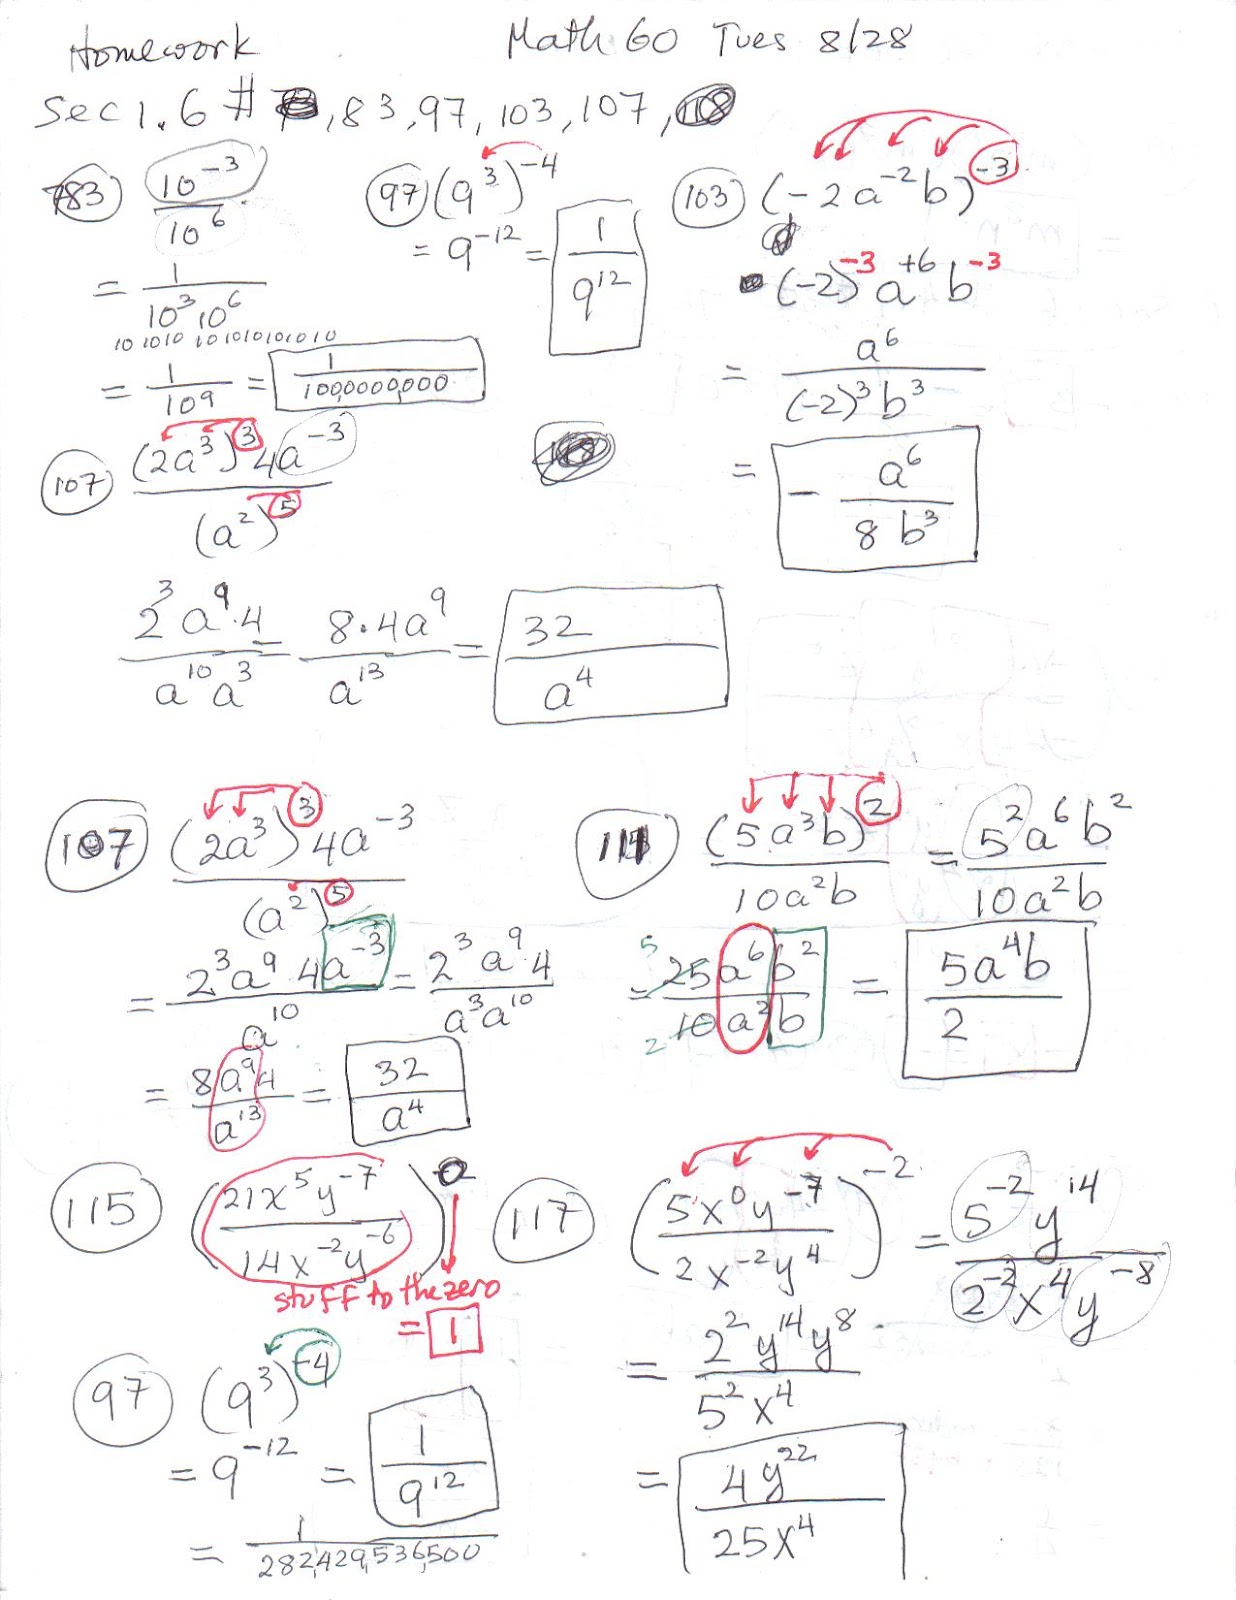 Homework Math 60 Tues 8/28
Sec 1.6 # , 83, 97, 103, 107,
83) 10^-3 / 10^6
= 1 / 10^3 · 10^6
10 10 10 10 10 10 10 10 10
= 1 / 10^9 = 1 / 100,0000,000
97 (9^3)^-4
= 9^-12 = 1 / 9^12
103 (-2a^-2 b)^-3
(-2)^-3 a^+6 b^-3
= a^6 / (-2)^3 b^3
= - a^6 / 8b^3
107 (2a^3)^3 4a^-3 / (a^2)^5
2^3 a^9 · 4 / a^10 a^3 = 8·4a^9 / a^13 = 32 / a^4
107 (2a^3)^3 4a^-3 / (a^2)^5
= 2^3 a^9 4a^-3 / a^10 = 2^3 a^9 4 / a^3 a^10
= 8a^9 4 / a^13 = 32 / a^4
111 (5a^3 b)^2 / 10a^2 b = 5^2 a^6 b^2 / 10a^2 b
5
= 25a^6 b^2 / 10a^2 b = 5a^4 b / 2
2
115 (21x^5 y^-7 / 14x^-2 y^-6)^0
stuff to the zero
= 1
117 (5x^0 y^-7 / 2x^-2 y^4)^-2 = 5^-2 y^14 / 2^-2 x^4 y^-8
= 2^2 y^14 y^8 / 5^2 x^4
= 4y^22 / 25x^4
97 (9^3)^-4
= 9^-12 = 1 / 9^12
= 1 / 282,429,536,500